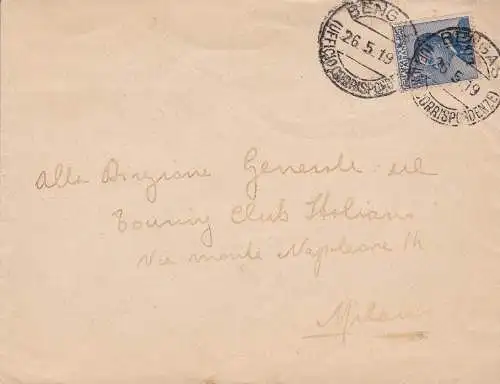 BENGASI
26.5.19
(UFFICIO CORRISPONDENZE)
BENGASI
26.5.19
CORRISPONDENZE)
Alla Direzione Generale del
Touring Club Italiano
Via monte Napoleone 14
Milano